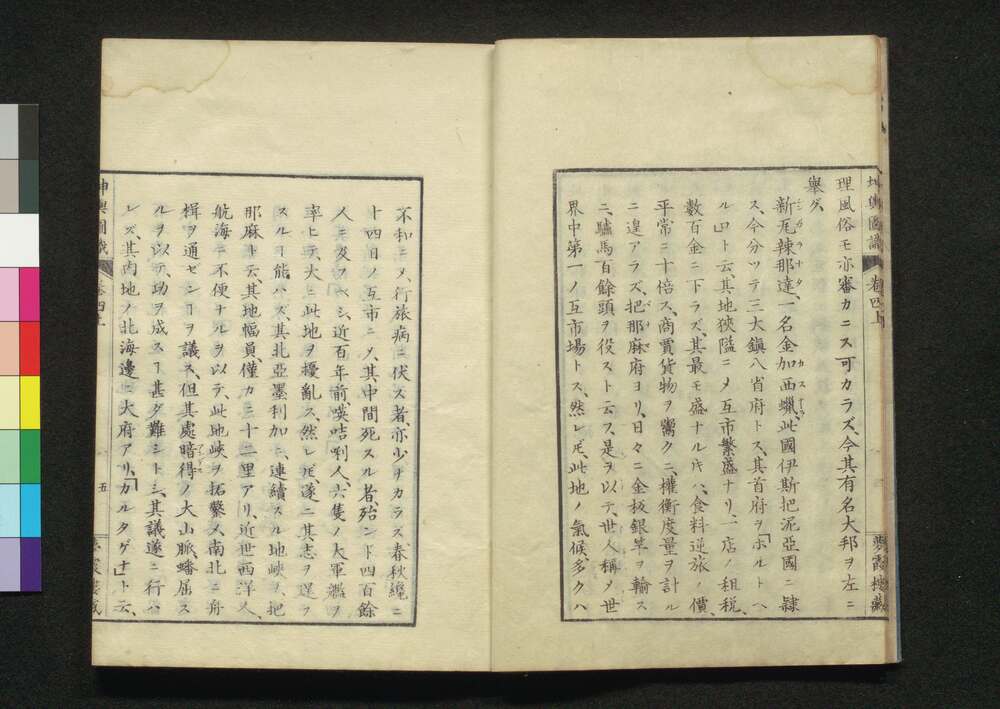 坤輿圖識
卷四上
夢霞樓藏
理風俗モ亦審カニス可カラズ、今其有名大邦ヲ左ニ
舉グ、
新瓦辣那達、一名金加西蠟、此國伊斯把泥亞國ニ隷
ス、今分ツテ三大鎭八省府トス、其首府ヲ「ホルトヘ
ル」ト云、其地狹隘ニメ互市繁盛ナリ、一店ノ租税、
數百金ニ下ラズ、其最モ盛ナル時ハ、食料逆旅ノ價、
平常ニ十倍ス、商賈貨物ヲ鬻クニ、權衡度量ヲ計ル
ニ遑アラズ、把那麻府ヨリ、日々ニ金板銀竿ヲ輸ス
ニ、驢馬百餘頭ヲ役スト云フ、是ヲ以テ、世人稱メ世
界中第一ノ互市場トス、然レ𪜈、此地ノ氣候、多クハ
不和ニメ、行旅病ニ伏ス者、亦少ナカラス、春秋纔ニ
十四日ノ互市ニメ、其中間死スル者、殆ント四百餘
人ニ及フベシ、近百年前、暎咭唎人、六隻ノ大軍艦ヲ
率ヒテ、大ニ此地ヲ擾亂ス、然レ𪜈、遂ニ其志ヲ逞フ
スルヿ能ハズ、其北亞墨利加ニ、連續スル地峽ヲ、把
那麻ト云、其地幅員、僅カニ十二里アリ、近世西洋人、
航海ニ不便ナルヲ以テ、此地峽ヲ拓鑿メ、南北ニ舟
楫ヲ通ゼンヿヲ議ス、但其處暗得ノ大山脈蟠屈ス
ルヲ以テ、功ヲ成スヿ甚タ難シトシ、其議遂ニ行ハ
レズ、其内地ノ北海邊ニ大府アリ、「カルタゲナ」ト云、
坤輿圖識
卷四上
五
夢霞樓藏